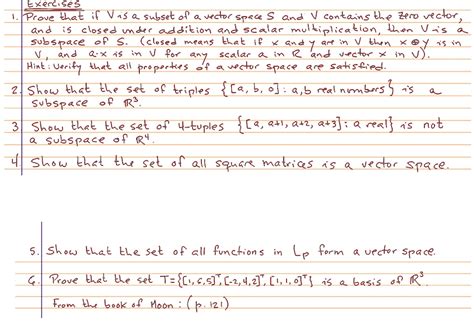 Exercises
1. Prove that if V is a subset of a vector space S and V contains the zero vector,
and is closed under addition and scalar multiplication, then V is a
subspace of S. (closed means that if x and y are in V then x ⊕ y is in
V, and a·x is in V for any scalar a in R and vector x in V).
Hint: Verify that all properties of a vector space are satisfied.
2. Show that the set of triples {[a, b, 0]: a,b real numbers} is a
subspace of ℝ³.
3 Show that the set of 4-tuples {[a, a+1, a+2, a+3]: a real} is not
a subspace of ℝ⁴.
4 Show that the set of all square matrices is a vector space.
5. Show that the set of all functions in Lp form a vector space.
6. Prove that the set T={[1,6,5]ᵀ,[-2,4,2]ᵀ,[1,1,0]ᵀ} is a basis of ℝ³
From the book of Moon: (p. 121)